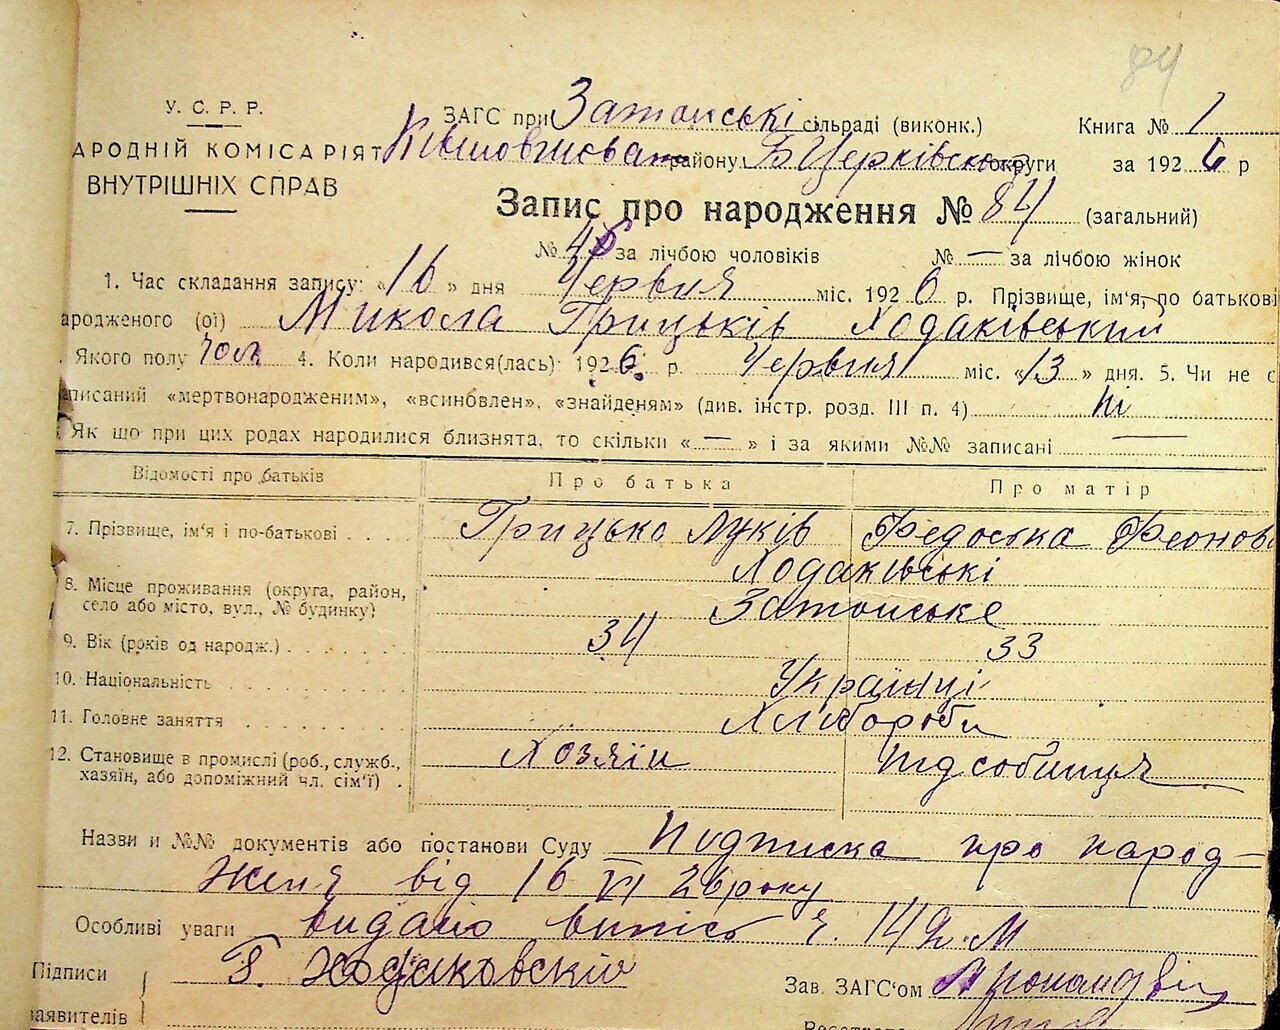 84
У. С. Р. Р.
АРОДНІЙ КОМІСАРІЯТ
ВНУТРІШНІХ СПРАВ
ЗАГС при Затонські сільраді (виконк.) Книга № 1
району Б Церківської округи за 1926 р
Запис про народження № 84 (загальний)
№ 46 за лічбою чоловіків № — за лічбою жінок
1. Час складання запису: «16» дня Червня міс. 1926 р. Прізвище, ім'я, по батькові
ародженого (ої) Микола Грицьків Ходаківський
. Якого полу чол 4. Коли народився(лась): 1926. р. Червня міс. «13» дня. 5. Чи не є
аписаний «мертвонародженим», «всиновлен», «знайденям» (див. інстр. розд. III п. 4) ні
Як що при цих родах народилися близнята, то скільки «—» і за якими №№ записані —
Відомості про батьків Про батька Про матір
7. Прізвище, ім'я і по-батькові . . . . Грицько Луків Федоська Феонов
Ходаківські
8. Місце проживання (округа, район, село або місто, вул., № будинку) Затонське
9. Вік (років од народж.) . . . . . . . 34 33
10. Національність . . . . . . . . . Українці
11. Головне заняття . . . . . . . . . Хлібороби
12. Становище в промислі (роб., служб., Хозяїн Підсобниця
хазяїн, або допоміжний чл. сім'ї) .
Назви и №№ документів або постанови Суду Подписка про народ-
женя від 16 VI 26 року
Особливі уваги видано випіс ч. 142
Підписи Г. Ходаковскій Зав. ЗАГС'ом
заявителів